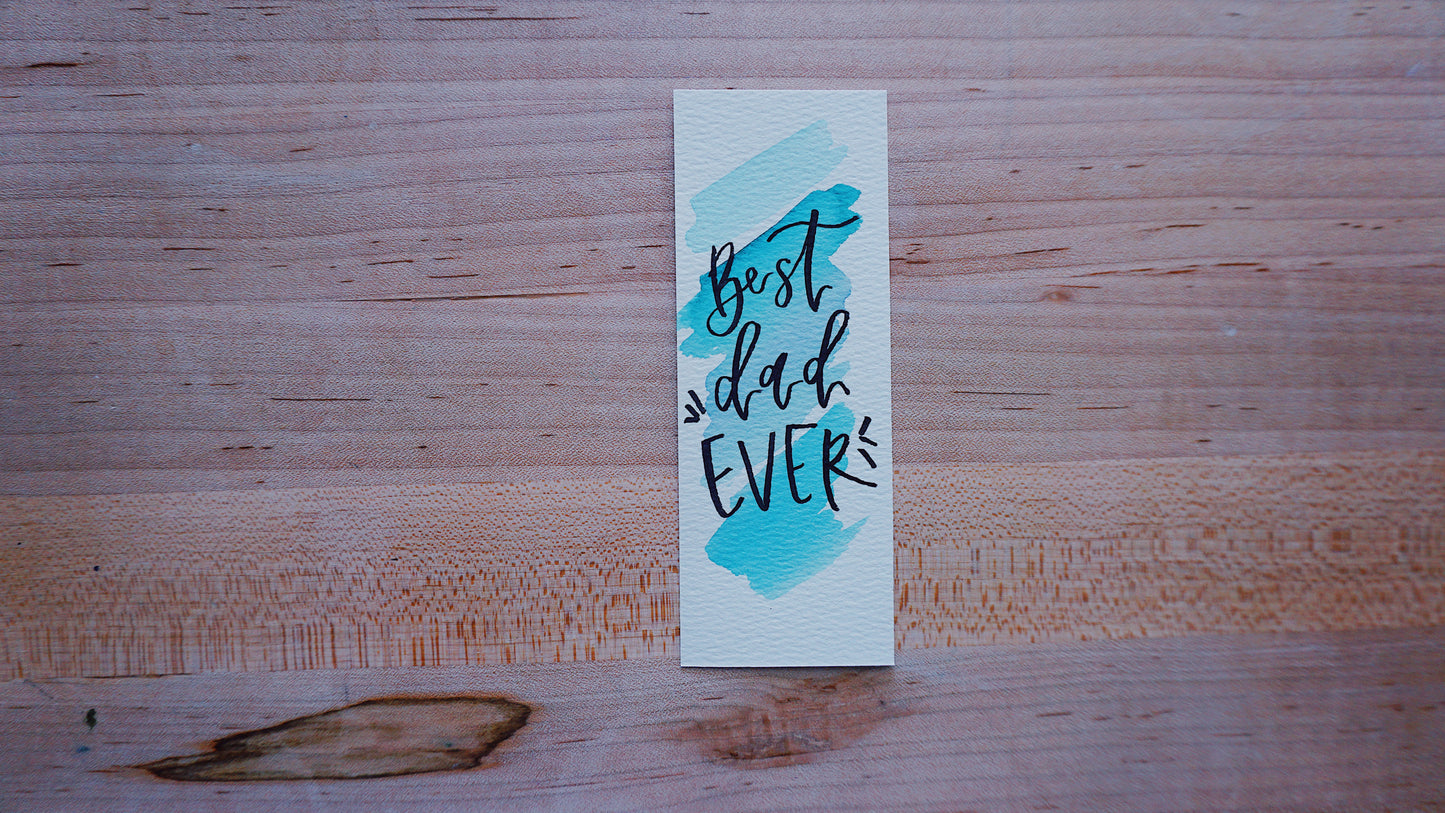 Best
dad
EVER